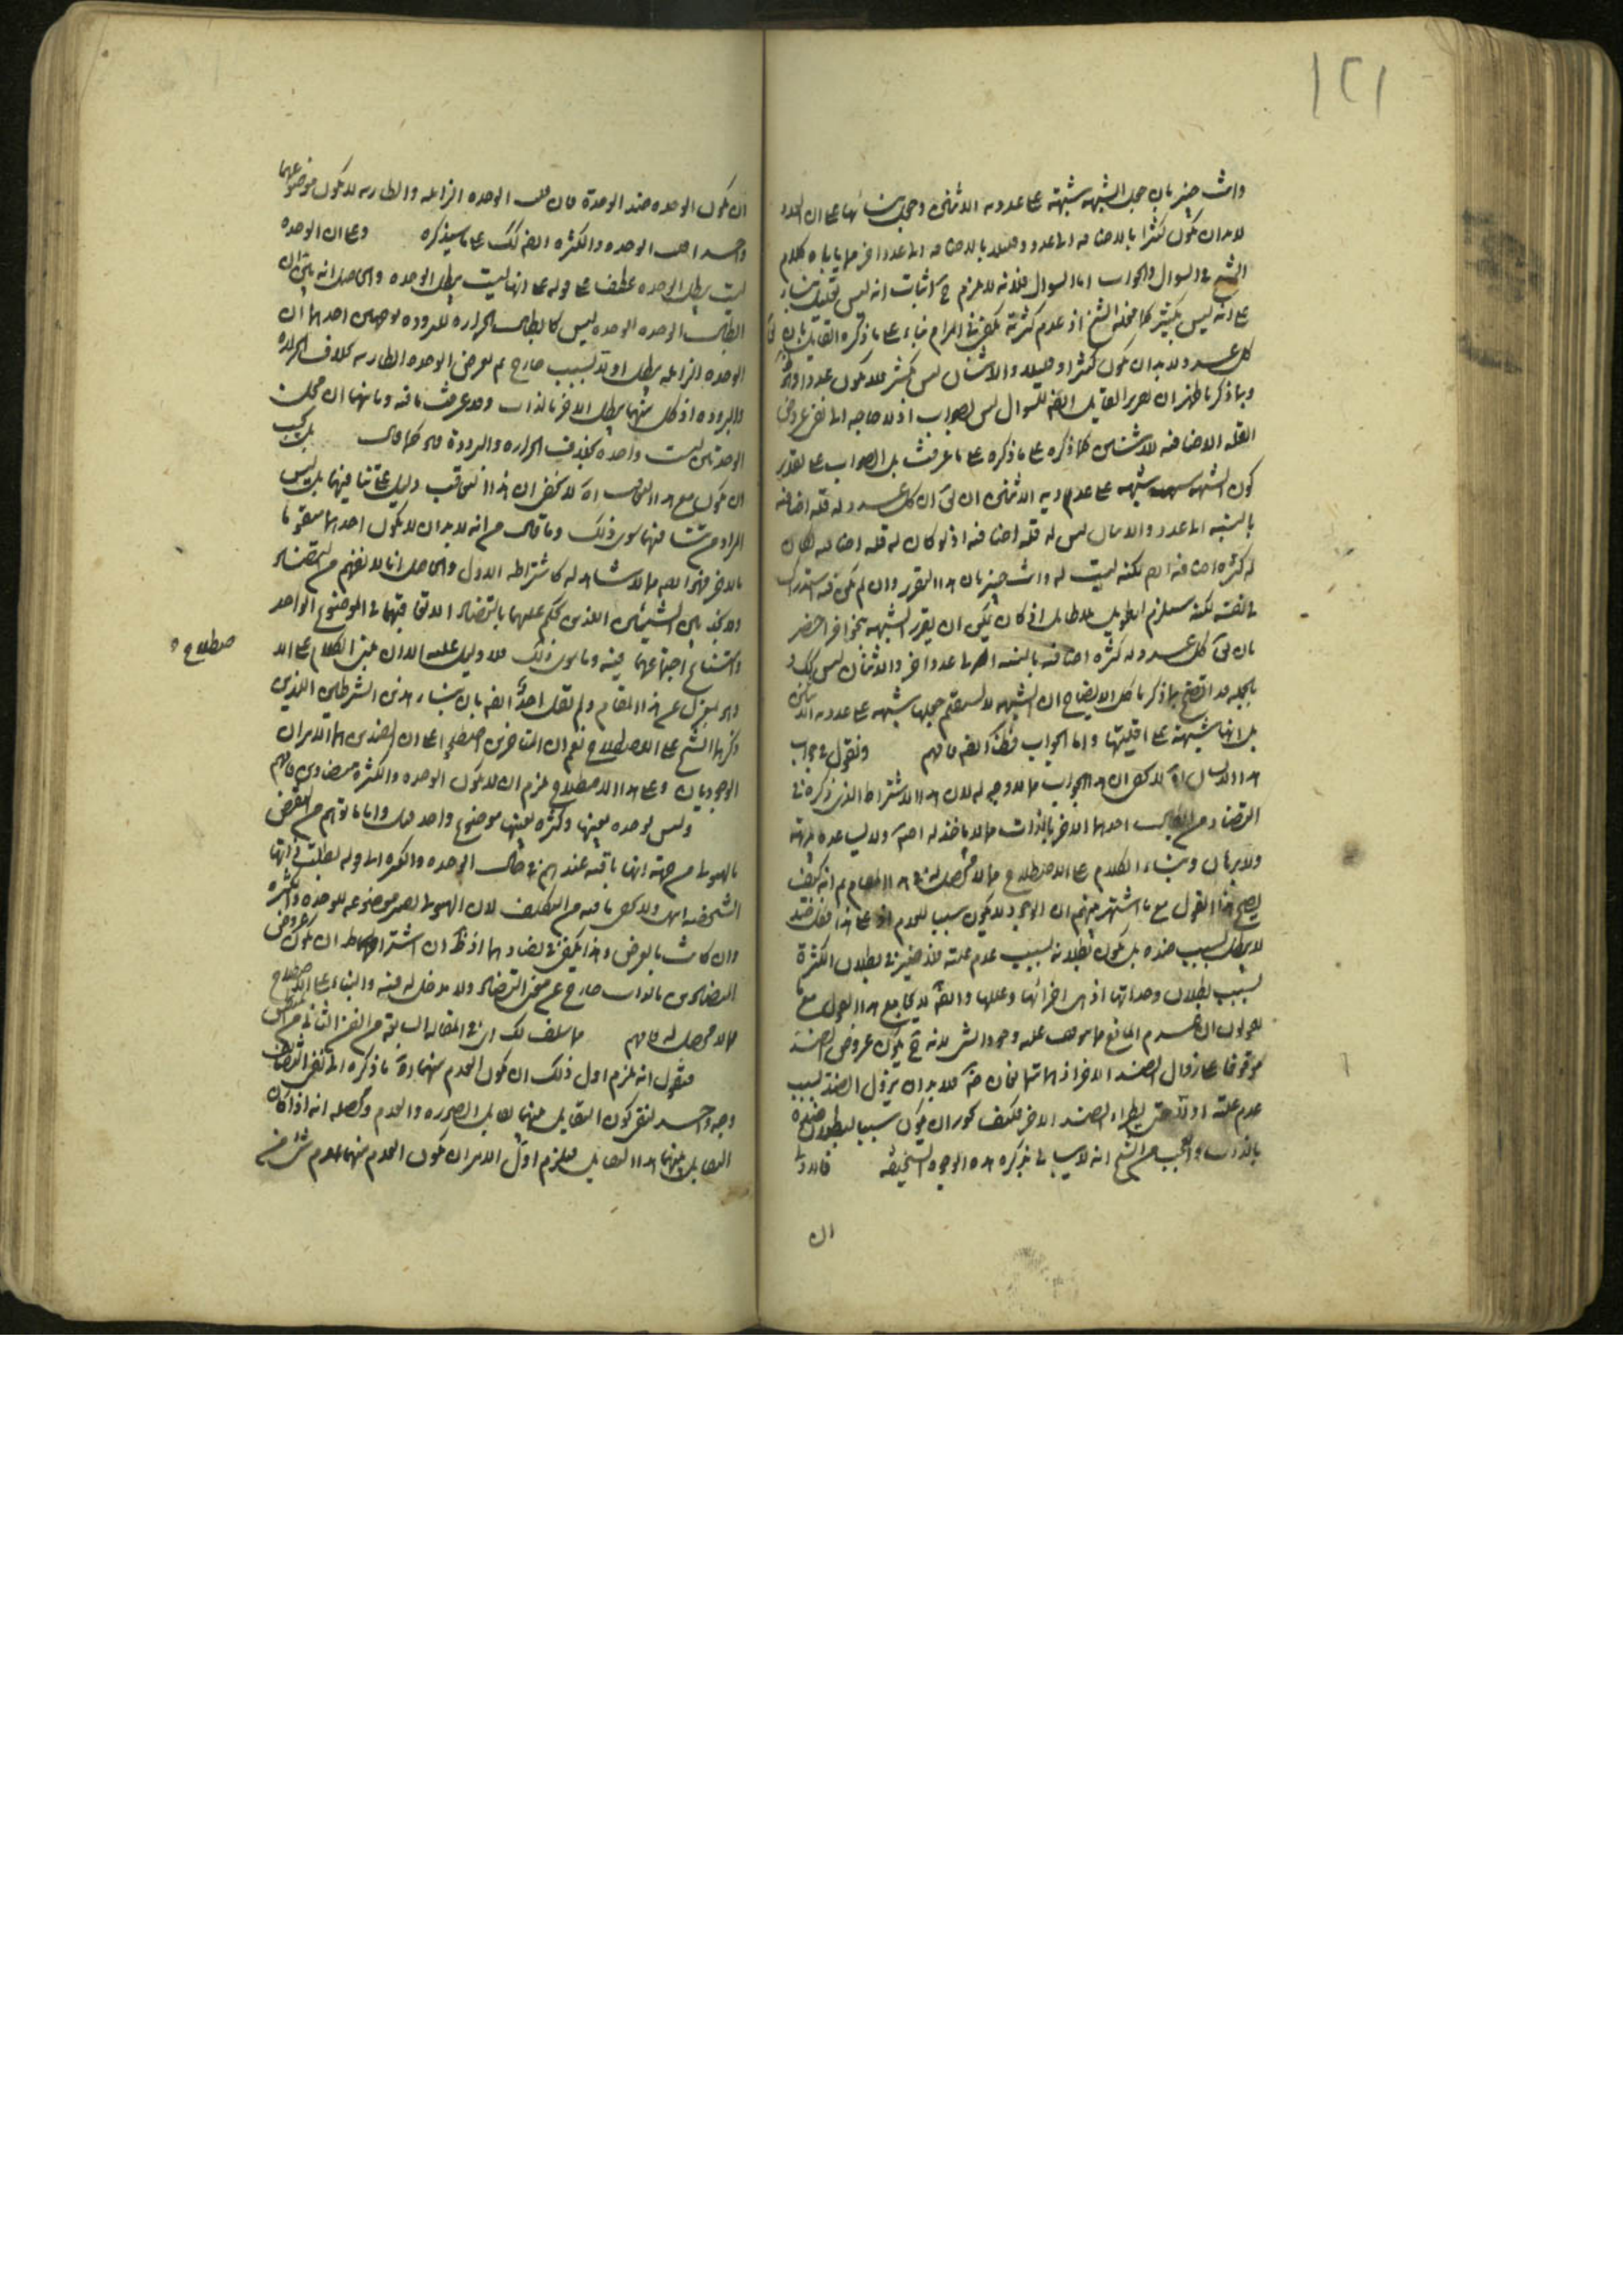 ١٢١
وانت خبير بان جعل الشبهة شبهة على عددية الاثنين وجعل بنائها على ان العدد
لا بد ان يكون كثيرا بالاضافة الى عدد وقليلا بالاضافة الى عدد اخر مما ياباه كلام
الشيخ في السوال والجواب اما السوال فلانه لا يلزم ح اثبات انه ليس بقليل بناء
على انه ليس بكثير كما فعله الشيخ اذ عدم كثرته يكفي في المرام بناء على ما ذكره القايل بان
كل عدد لا بد ان يكون كثيرا وقليلا والاثنان ليس بكثير فلا يكون عددا
وبما ذكرنا ظهر ان تقرير القايل ايضا للسوال ليس بصواب اذ لا حاجة الى نفي عروض
القلة الاضافية للاثنين كما ذكره على ما ذكره على ما عرفت بل الصواب على تقدير
كون الشبهة شبهة على عدم عددية الاثنين ان يق ان كل عدد له قلة اضافية
بالنسبة الى عدد والاثنان ليس له قلة اضافية اذ لو كان له قلة اضافية لكان
له كثرة اضافية ايضا لكنه ليست له وانت خبير بان هذا التقرير وان لم يكن فيه استدراك
في نفسه لكنه يستلزم تطويلا بلا طايل اذ كان يمكن ان يقرر الشبهة بنحو اخر اخصر
بان يق كل عدد له كثرة اضافية بالنسبة الى عدد اخر والاثنان ليس كك
بالجملة قد اتضح بما ذكرنا كل الايضاح ان الشبهة لا يستقيم جعلها شبهة على عددية الاثنين
بل انها شبهة على اقليتها واما الجواب فكذا ايضا فافهم ونقول في جواب
هذا الاول اه لا يخفى ان هذا الجواب مما لا وجه له لان هذا الاشتراط الذي ذكره في
التضاد من احدهما الاخر بالذات مما لا ماخذ له اصلا ولا يساعده
ولا برهان وبناء الكلام على الاصطلاح مما لا محصل له في هذا المقام ثم انه كيف
يصح هذا القول مع ما اشتهر بينهم ان الوجود لا يكون سببا للعدم اذ على هذا فكل ضد
لا يبطل بسبب ضده بل يكون بطلانه بسبب عدم علته فلا ضير في بطلان الكثرة
بسبب بطلان وحداتها اذ هي اجزائها وعللها وايضا لا يجامع هذا القول مع ما
يقولون ان عدم المانع مما يتوقف عليه وجود الشئ لانه ح يكون عروض الضد
موقوفا على زوال الضد الاخر اذ هما متمانعان ح فلا بد ان يزول الضد بسبب
عدم علته اولا حتى يطرء الضد الاخر فكيف يجوز ان يكون سببا لبطلان ضده
بالذات والعجب من الشيخ انه لا يبالي بذكر هذه الوجوه السخيفة
ان
ان يكون الوحدة ضد الوحدة فان قلت الوحدة الزايلة والطارية لا يكون موضوعهما
واحدا قلت الوحدة والكثرة ايضا كك على ما سيذكره وعلى ان الوحدة
ليست يبطل الوحدة عطف على قوله على انها ليست يبطل الوحدة والحاصل انه يق ان
ابطال الوحدة الوحدة ليس كابطال الحرارة للبرودة لوجهين احدهما ان
الوحدة الزايلة يبطل اولا بسبب خارج ثم يعرض الوحدة الطارية بخلاف الحرارة
والبرودة اذ كل منهما يبطل الاخر بالذات وقد عرفت ما فيه وثانيهما ان محلي
الوحدتين ليست واحدة بخلاف الحرارة والبرودة كما قال بل يجب
ان يكون مع هذا التعاقب اه لا يخفى ان هذا التعاقب دليل على تنافيهما بل ليس
المراد من تنافيهما سوى ذلك وما قال من انه لا بد ان لا يكون احدهما متقوما
بالاخر فهو ايضا مما لا شاهد له كاشتراطه الاول والحاصل انا لا نفهم من التضاد
ولا نجد بين الشيئين اللذين يحكم عليهما بالتضاد الا تعاقبهما في الموضوع الواحد
وامتناع اجتماعهما فيه وما سوى ذلك فلا دليل عليه الا ان يبنى الكلام على الا
صطلاح
وهو بمعزل عن هذا المقام ولم نقل احدا ايضا بان بناء هذين الشرطين اللذين
ذكرهما الشيخ على الاصطلاح نعم ان المتاخرين اصطلحوا على ان الضدين هما الامران
الوجوديان وعلى هذا الاصطلاح يلزم ان لا يكون الوحدة والكثرة متضادين فافهم
وليس لوحدة بعينها وكثرة بعينها موضوع واحد واما ما توهم من النقض
بالهيولى من جهة انها باقية عندهم في حالتي الوحدة والكثرة
الشخصية ولا يخفى ما فيه من التكلف لان الهيولى ليس موضوعة للوحدة والكثرة
وان كانت بالعرض وهذا يكفي في تضادهما اذ ظ ان اشتراطه ان يكون عروض
المتضادين بالذات خارج عن معنى التضاد ولا مدخل له فيه والبناء على الاصطلاح
مما لا محصل له فافهم ما سلف لك اي في المقالة السابقة من الفن الثاني من
فنقول انه يلزم اول ذلك ان يكون العدم منهما اه ما ذكره
وجه واحد لنفي كون التقابل بينهما تقابل الصورة والعدم ومحصله انه اذا كان
التقابل بينهما هذا التقابل فيلزم اول الامر ان يكون العدم منهما عدم شئ